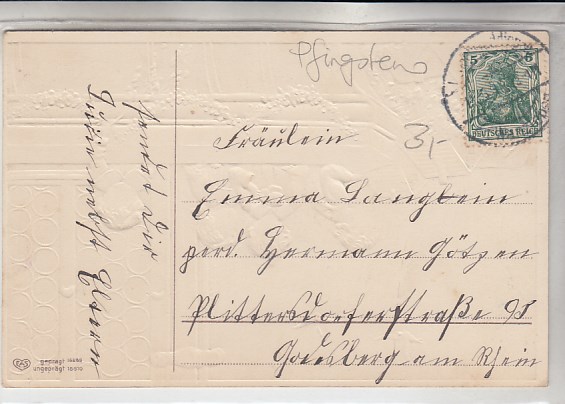 Pfingsten
5 5
DEUTSCHES REICH
3,-
Fräulein
Emma Langbein
perd. Hermann Götzen
Plittersdorferstraße 95
Godesberg am Rhein
sendet Dir
nebst Eltern
geprägt
ungeprägt